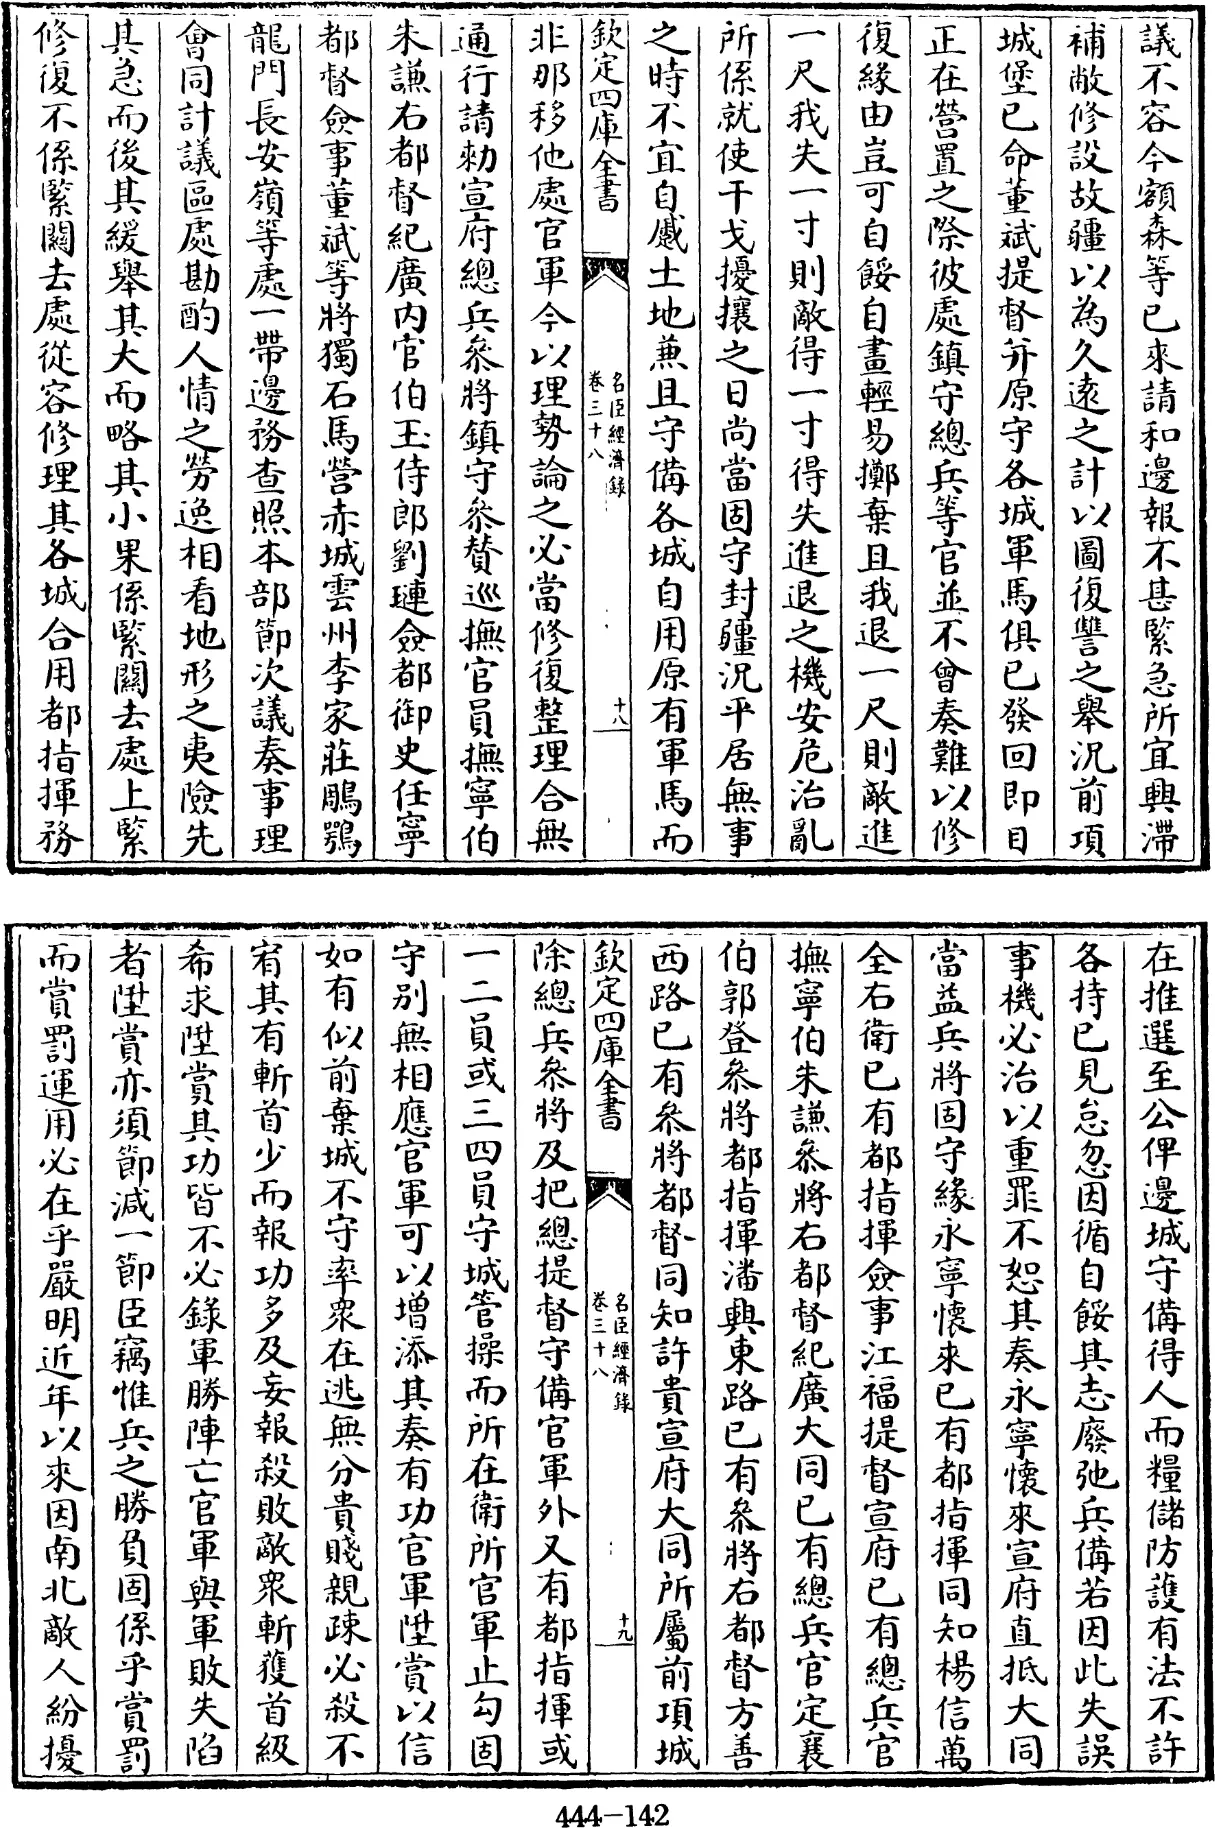 議不容今額森等已來請和邊報不甚緊急所宜興滯
補敝修設故疆以為久遠之計以圖復讐之舉況前項
城堡已命董斌提督并原守各城軍馬俱已發回即目
正在營置之際彼處鎮守總兵等官並不曾奏難以修
復緣由豈可自餒自畫輕易擲棄且我退一尺則敵進
一尺我失一寸則敵得一寸得失進退之機安危治亂
所係就使干戈擾攘之日尚當固守封疆況平居無事
之時不宜自蹙土地兼且守備各城自用原有軍馬而
欽定四庫全書
名臣經濟錄
卷三十八
十八
非那移他處官軍今以理勢論之必當修復整理合無
通行請勅宣府總兵參將鎮守參贊巡撫官員撫寧伯
朱謙右都督紀廣内官伯玉侍郎劉璉僉都御史任寧
都督僉事董斌等將獨石馬營赤城雲州李家莊鵰鶚
龍門長安嶺等處一帶邊務查照本部節次議奏事理
會同計議區處勘酌人情之勞逸相看地形之夷險先
其急而後其緩舉其大而略其小果係緊關去處上緊
修復不係緊關去處從容修理其各城合用都指揮務
在推選至公俾邊城守備得人而糧儲防護有法不許
各持已見怠忽因循自餒其志廢弛兵備若因此失誤
事機必治以重罪不恕其奏永寧懷來宣府直抵大同
當益兵將固守緣永寧懷來已有都指揮同知楊信萬
全右衛已有都指揮僉事江福提督宣府已有總兵官
撫寧伯朱謙參將右都督紀廣大同已有總兵官定襄
伯郭登參將都指揮潘興東路已有參將右都督方善
西路已有參將都督同知許貴宣府大同所屬前項城
欽定四庫全書
名臣經濟錄
卷三十八
十九
除總兵參將及把總提督守備官軍外又有都指揮或
一二員或三四員守城管操而所在衛所官軍止勾固
守别無相應官軍可以增添其奏有功官軍陞賞以信
如有似前棄城不守率衆在逃無分貴賤親疎必殺不
宥其有斬首少而報功多及妄報殺敗敵衆斬獲首級
希求陞賞其功皆不必錄軍勝陣亡官軍與軍敗失陷
者陞賞亦須節減一節臣竊惟兵之勝負固係乎賞罰
而賞罰運用必在乎嚴明近年以來因南北敵人紛擾
444-142